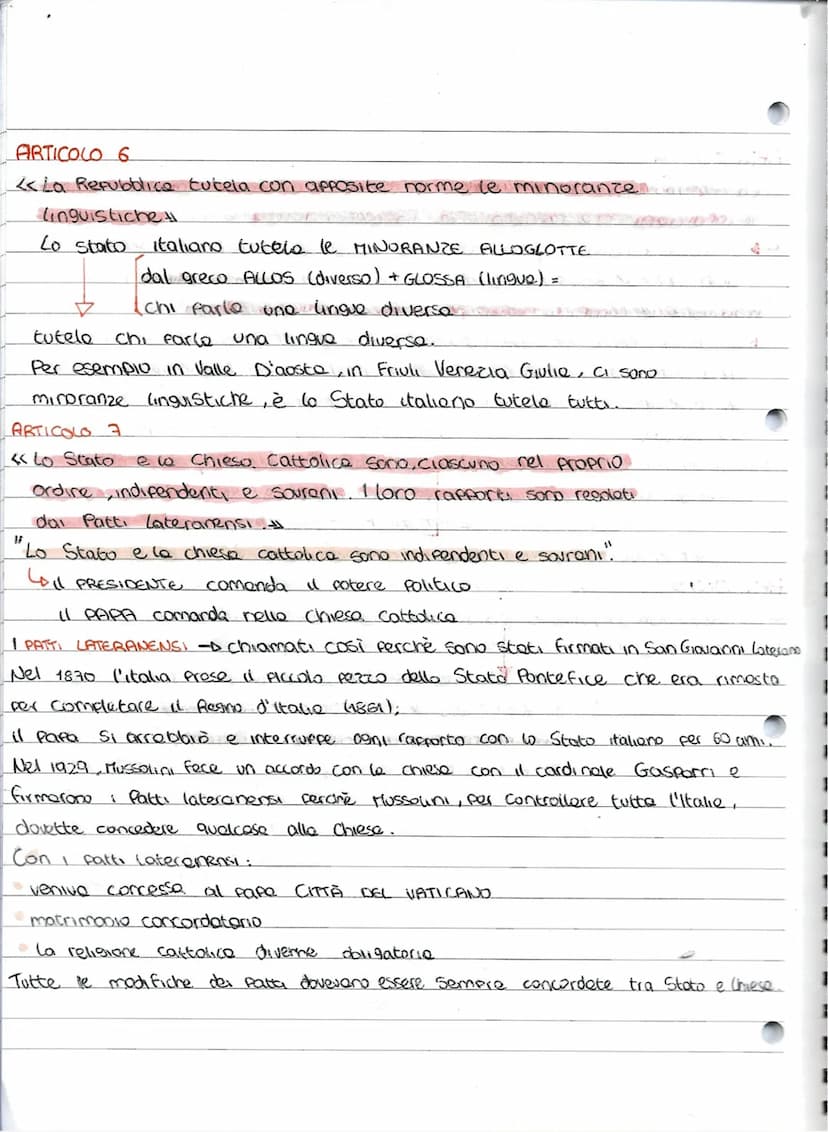 ARTICOLO 6
<< La Repubblica tutela con apposite norme le minoranze
linguistiche >>
Lo stato italiano tutela le MINORANZE ALLOGLOTTE
dal greco ALLOS (diverso) + GLOSSA (lingua) =
chi parla una lingua diversa
tutela chi parla una lingua diversa.
Per esempio in Valle D'aosta, in Friuli Venezia Giulia, ci sono
minoranze linguistiche, è lo Stato italiano tutela tutti.
ARTICOLO 7
<< Lo Stato e la Chiesa Cattolica sono, ciascuno nel proprio
ordine, indipendenti e sovrani. I loro rapporti sono regolati
dai Patti Lateranensi. >>
"Lo Stato e la chiesa cattolica sono indipendenti e sovrani".
↳ il PRESIDENTE comanda il potere politico
il PAPA comanda nella chiesa cattolica
I PATTI LATERANENSI → chiamati così perchè sono stati firmati in San Giovanni Laterano
Nel 1870 l'italia prese il piccolo pezzo dello Stato Pontefice che era rimasto
per completare il Regno d'Italia (1861);
il papa si arrabbiò e interruppe ogni rapporto con lo Stato italiano per 60 anni.
Nel 1929, Mussolini fece un accordo con la chiesa con il cardinale Gasparri e
firmarono i Patti lateranensi perchè Mussolini, per controllare tutta l'Italia,
dovette concedere qualcosa alla Chiesa.
Con i patti lateranensi:
• veniva concessa al papa CITTÀ DEL VATICANO
• matrimonio concordatario
• la religione cattolica divenne obbligatoria
Tutte le modifiche dei patti dovevano essere sempre concordate tra Stato e Chiesa